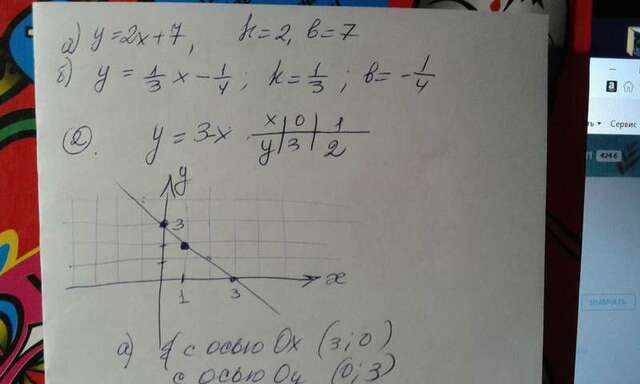 а) y = 2x + 7, k = 2, b = 7
б) y = 1/3 x - 1/4 ; k = 1/3 ; b = - 1/4
②. y = 3-x
x | 0 | 1
y | 3 | 2
y
3
1 3 x
а) с осью Ox (3; 0)
с осью Oy (0; 3)
a
Сервис
4246
ВЫБРАТЬ